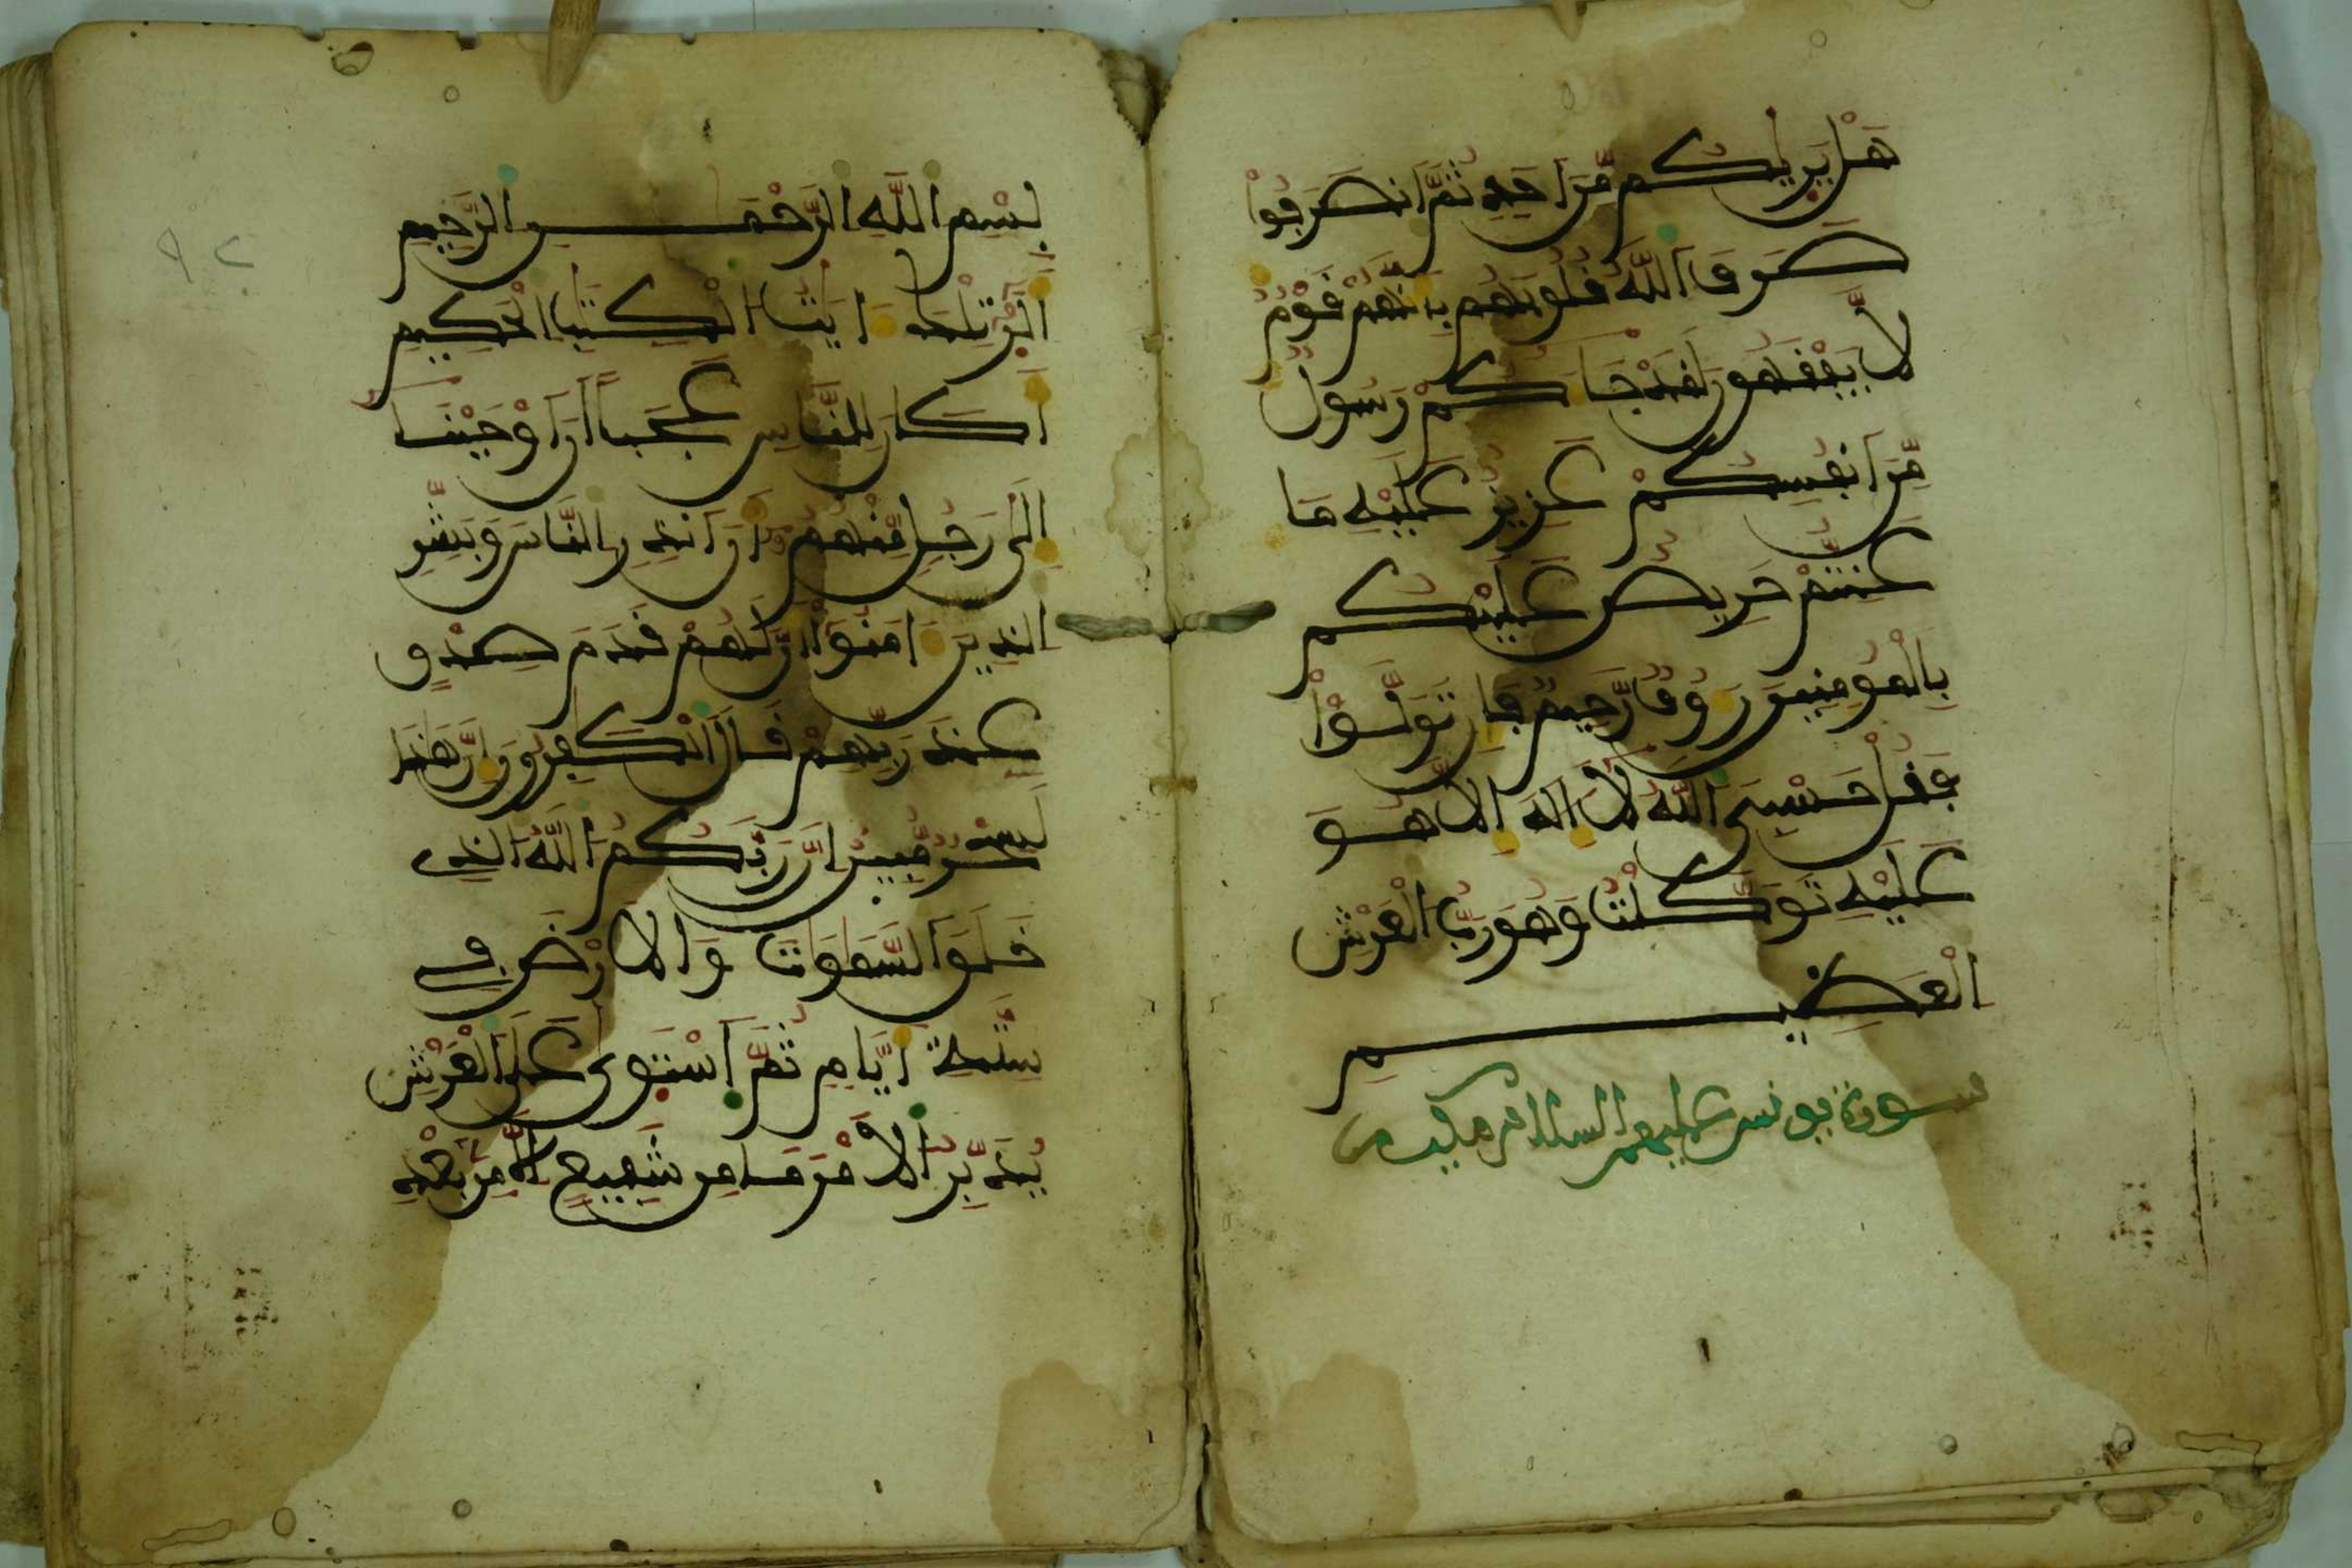 هَلْ يَرِيٰكُم مِّنَ اَحَدٖ ثُمَّ اَنصَرَفُواْ
صَرَفَ اَللَّهُ قُلُوبَهُم بِأَنَّهُمْ قَوْمٞ
لَّا يَفْقَهُونَ لَقَدْ جَآءَكُمْ رَسُولٞ
مِّنَ اَنفُسِكُمْ عَزِيزٌ عَلَيْهِ مَا
عَنِتُّمْ حَرِيصٌ عَلَيْكُم
بِالْمُومِنِينَ رَءُوفٞ رَّحِيمٞ فَإِن تَوَلَّوْاْ
فَقُلْ حَسْبِيَ اَللَّهُ لَآ إِلَٰهَ إِلَّا هُوَ
عَلَيْهِ تَوَكَّلْتُ وَهُوَ رَبُّ اُلْعَرْشِ
اِلْعَظِيمِ
سورة يونس عليه السلام مكية
بِسْمِ اِللَّهِ اِلرَّحْمَٰنِ اِلرَّحِيمِ
أَلَٓر تِلْكَ ءَايَٰتُ اُلْكِتَٰبِ اِلْحَكِيمِ
أَكَانَ لِلنَّاسِ عَجَبًا أَنَ اَوْحَيْنَآ
إِلَىٰ رَجُلٖ مِّنْهُمُۥٓ أَنَ اَنذِرِ اِلنَّاسَ وَبَشِّرِ
اِلذِينَ ءَامَنُوٓاْ أَنَّ لَهُمْ قَدَمَ صِدْقٍ
عِندَ رَبِّهِمْ قَالَ اَلْكَٰفِرُونَ إِنَّ هَٰذَا
لَسِحْرٞ مُّبِينٌ اِنَّ رَبَّكُمُ اُللَّهُ اُلذِے
خَلَقَ اَلسَّمَٰوَٰتِ وَالَارْضَ فِے
سِتَّةِ أَيَّامٖ ثُمَّ اَسْتَوَىٰ عَلَى اَلْعَرْشِ
يُدَبِّرُ اُلَامْرَ مَا مِن شَفِيعٍ اِلَّا مِنۢ بَعْدِ
٩٢